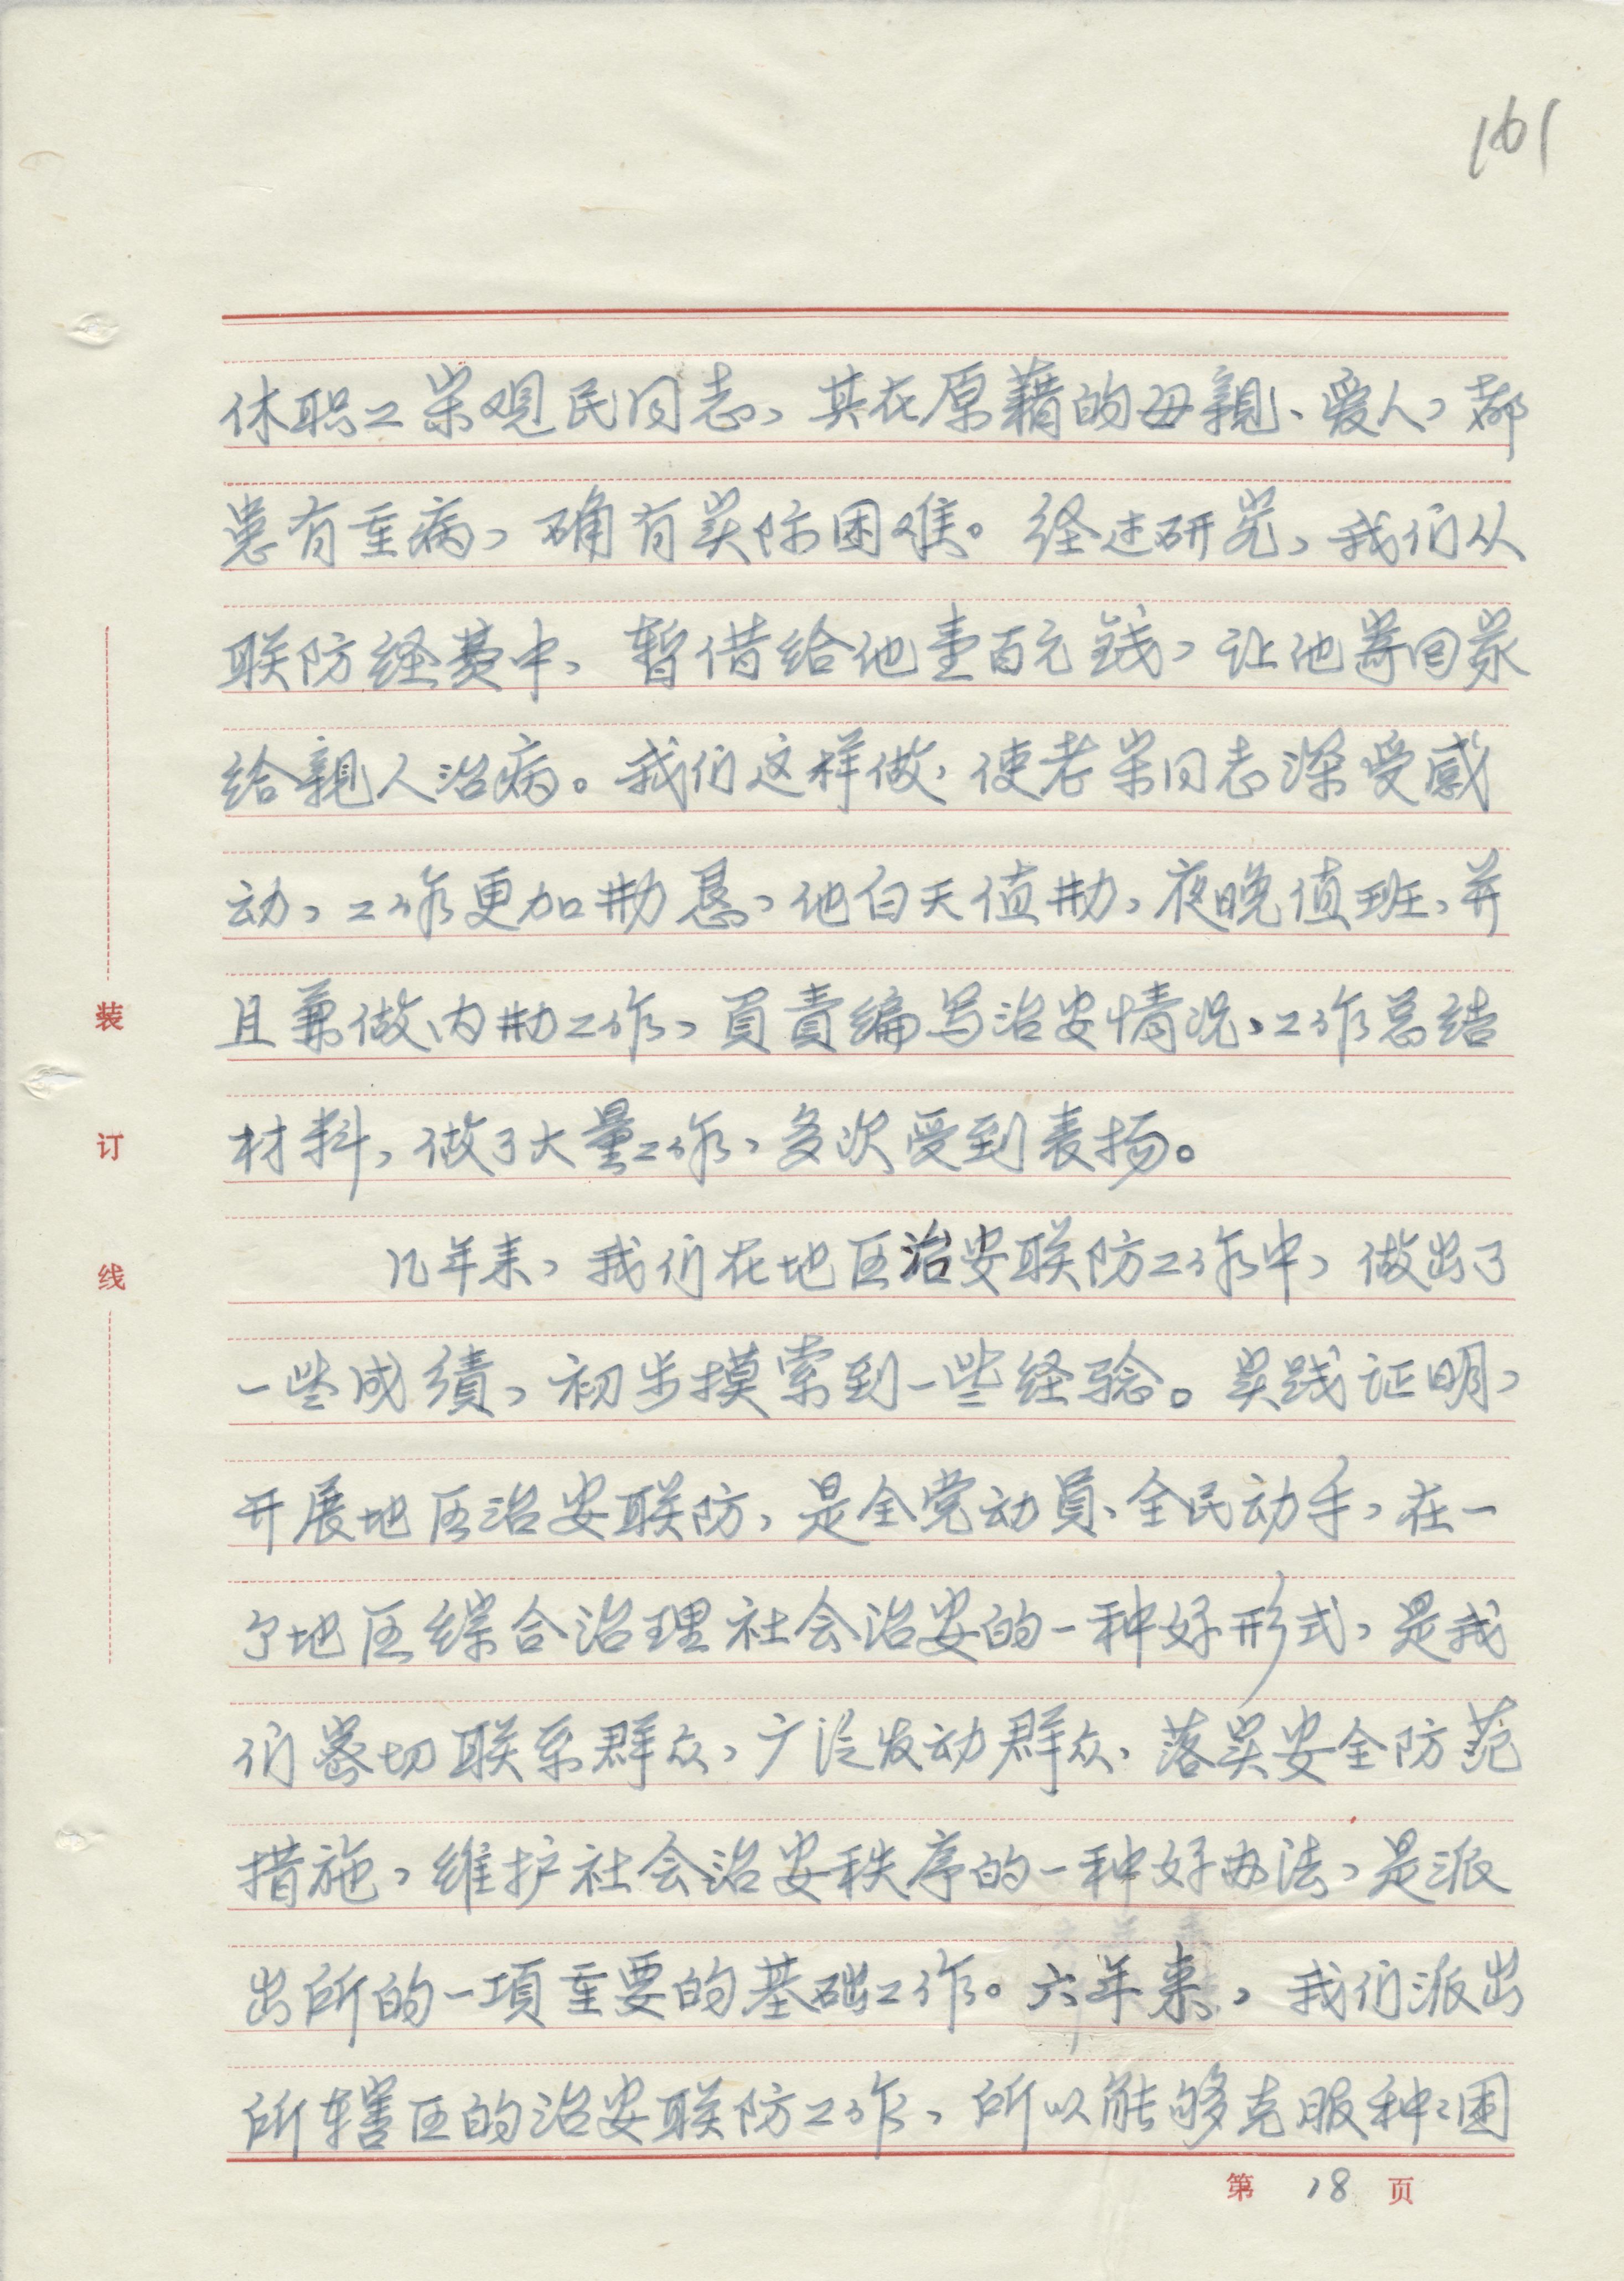 161
休职工宋观民同志，其在原藉的母親、爱人，都
患有重病，确有实际困难。经过研究，我们从
联防经费中，暂借给他壹百元钱，让他寄回家
给親人治病。我们这样做，使老宋同志深受感
动，工作更加勤恳，他白天值勤，夜晚值班，并
且兼做内勤工作，負責编写治安情况、工作总结
材料，做了大量工作，多次受到表扬。
几年来，我们在地区治安联防工作中，做出了
一些成績，初步摸索到一些经验。实践证明，
开展地区治安联防，是全党动員、全民动手，在一
个地区综合治理社会治安的一种好形式，是我
们密切联系群众，广泛发动群众，落实安全防范
措施，维护社会治安秩序的一种好办法，是派
出所的一項重要的基础工作。六年来，我们派出
所辖区的治安联防工作，所以能够克服种〻困
装
订
线
第 18 页